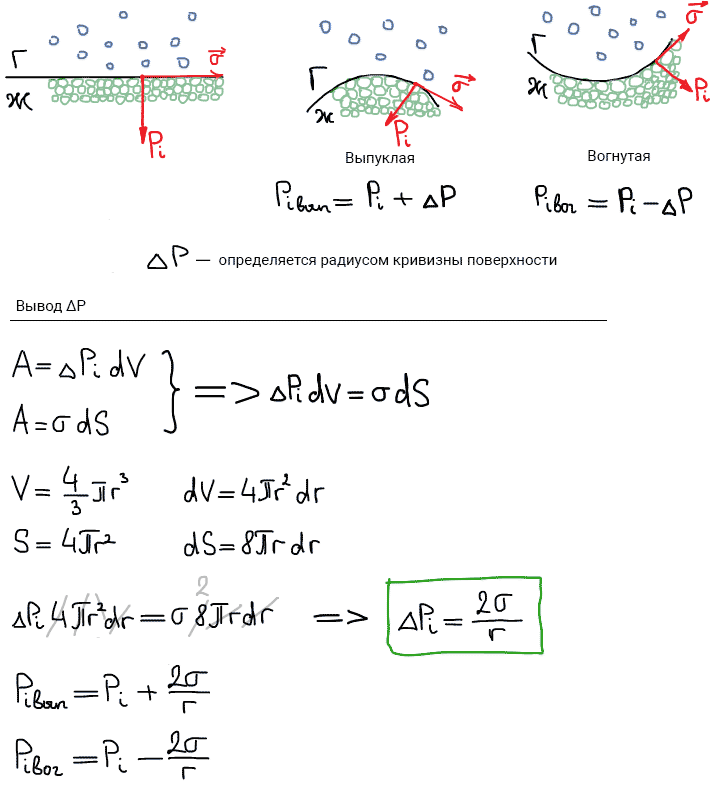 Г
Ж
σ⃗
Pᵢ
Г
Ж
σ⃗
Pᵢ
Г
Ж
σ⃗
Pᵢ
Выпуклая
Вогнутая
Pᵢ вып = Pᵢ + ΔP
Pᵢ вог = Pᵢ − ΔP
ΔP — определяется радиусом кривизны поверхности
Вывод ΔP
A = ΔPᵢ dV
A = σ dS
} => ΔPᵢ dV = σ dS
V = 4/3 πr³ dV = 4πr² dr
S = 4πr² dS = 8πr dr
2
ΔPᵢ 4πr² dr = σ 8πr dr => ΔPᵢ = 2σ/r
Pᵢ вып = Pᵢ + 2σ/r
Pᵢ вог = Pᵢ − 2σ/r